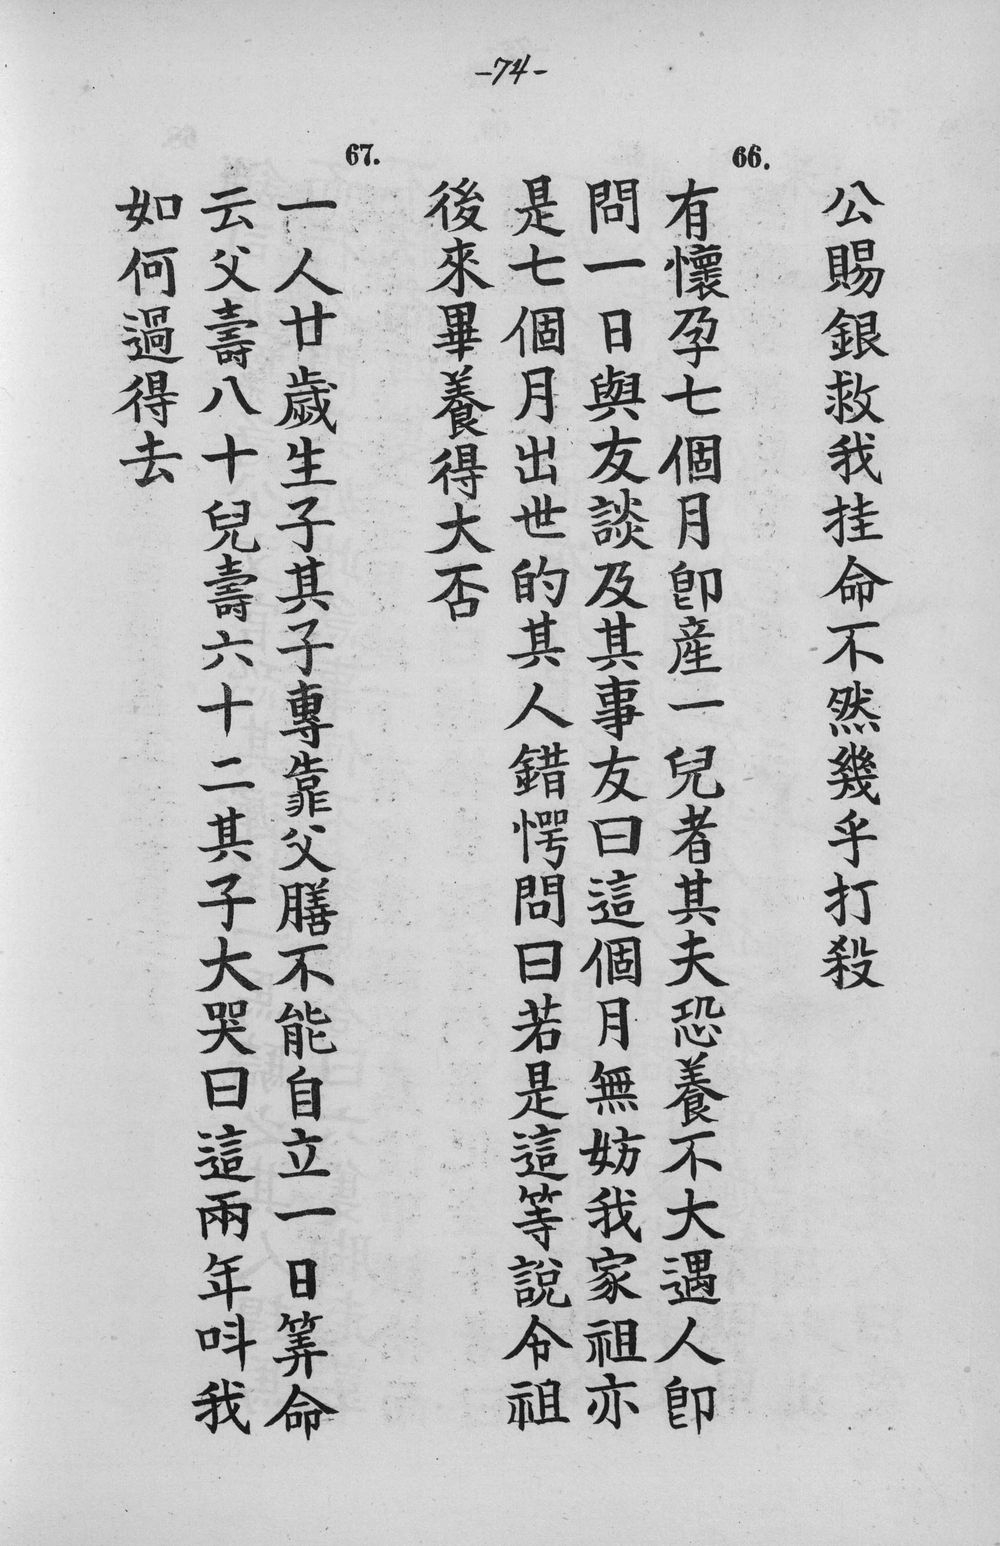 -74-
公賜銀救我挂命不然幾乎打殺
66.
有懷孕七個月卽産一兒者其夫恐養不大遇人卽
問一日與友談及其事友曰這個月無妨我家祖亦
是七個月出世的其人錯愕問曰若是這等說令祖
後來畢養得大否
67.
一人廿歲生子其子專靠父膳不能自立一日筭命
云父壽八十兒壽六十二其子大哭曰這兩年呌我
如何過得去